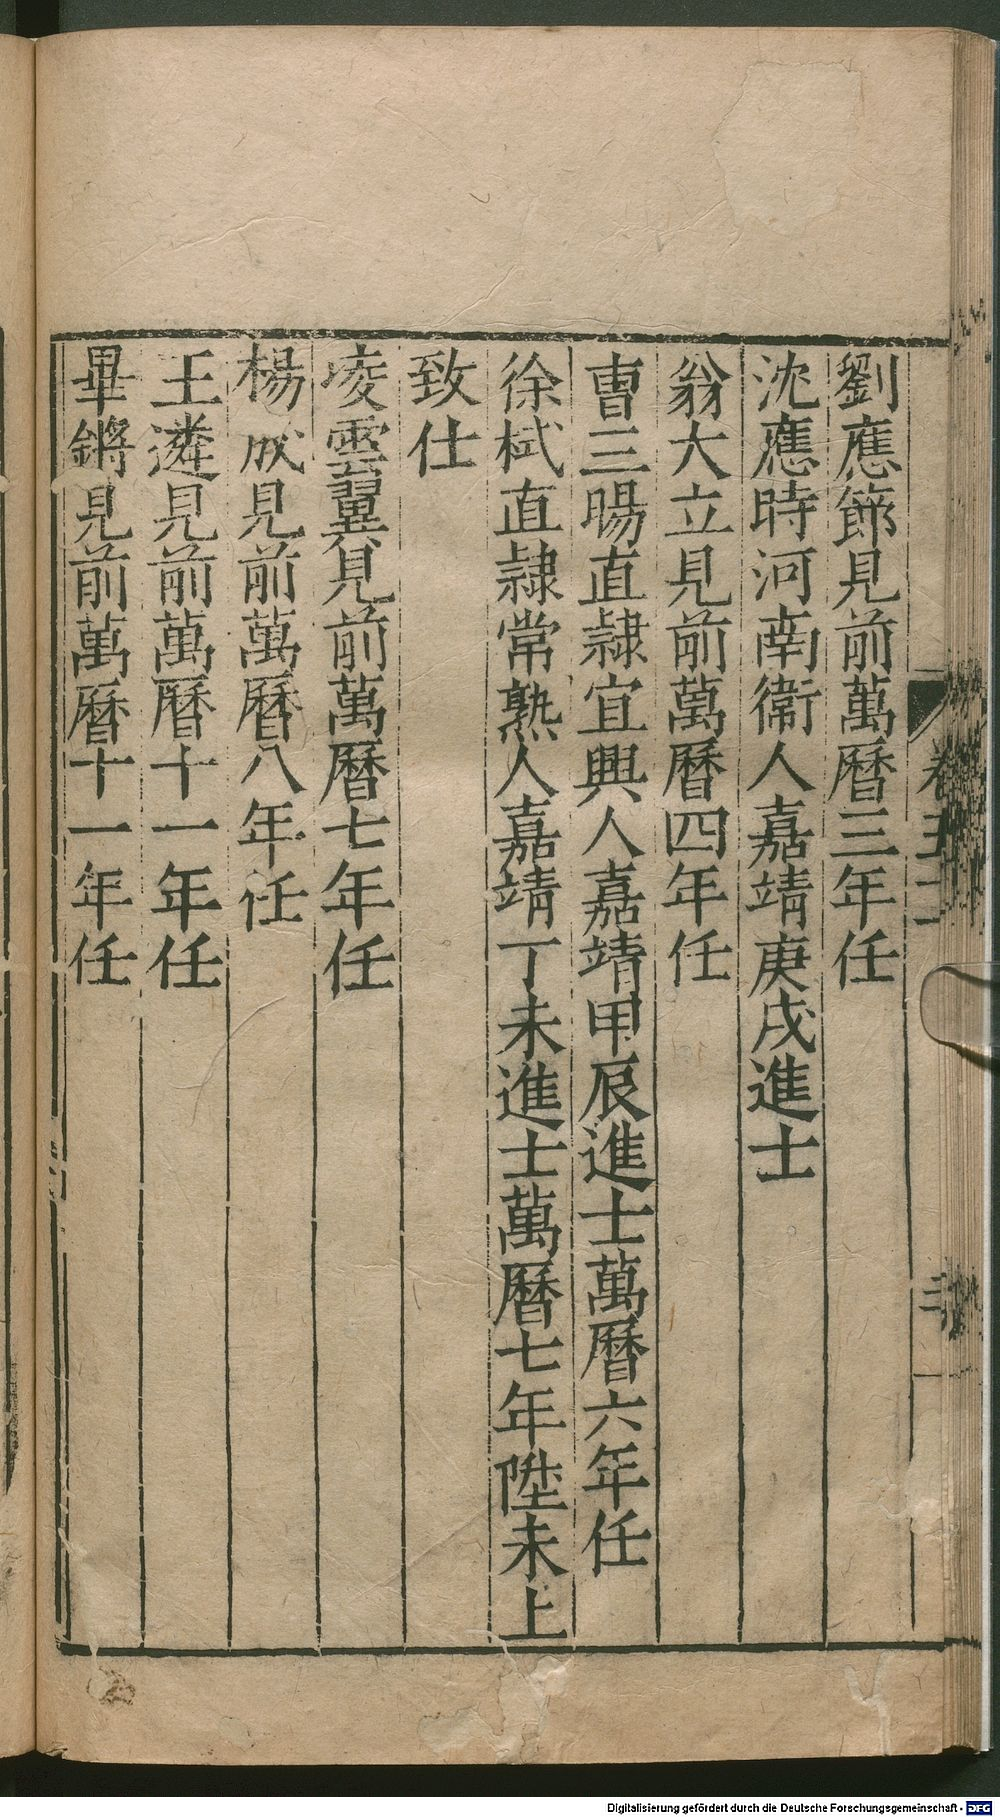 劉應節見前萬曆三年任
沈應時河南衞人嘉靖庚戌進士
翁大立見前萬曆四年任
曹三暘直隷宜興人嘉靖甲辰進士萬曆六年任
徐栻直隷常熟人嘉靖丁未進士萬曆七年陞未上
致仕
凌雲翼見前萬曆七年任
楊成見前萬曆八年任
王遴見前萬曆十一年任
畢鏘見前萬曆十一年任
Digitalisierung gefördert durch die Deutsche Forschungsgemeinschaft - DFG